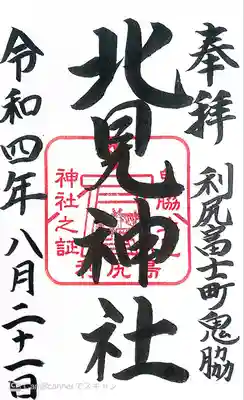 奉拝
利尻富士町鬼脇
北見神社
令和四年八月二十一日
神社之証
CamScannerでスキャン